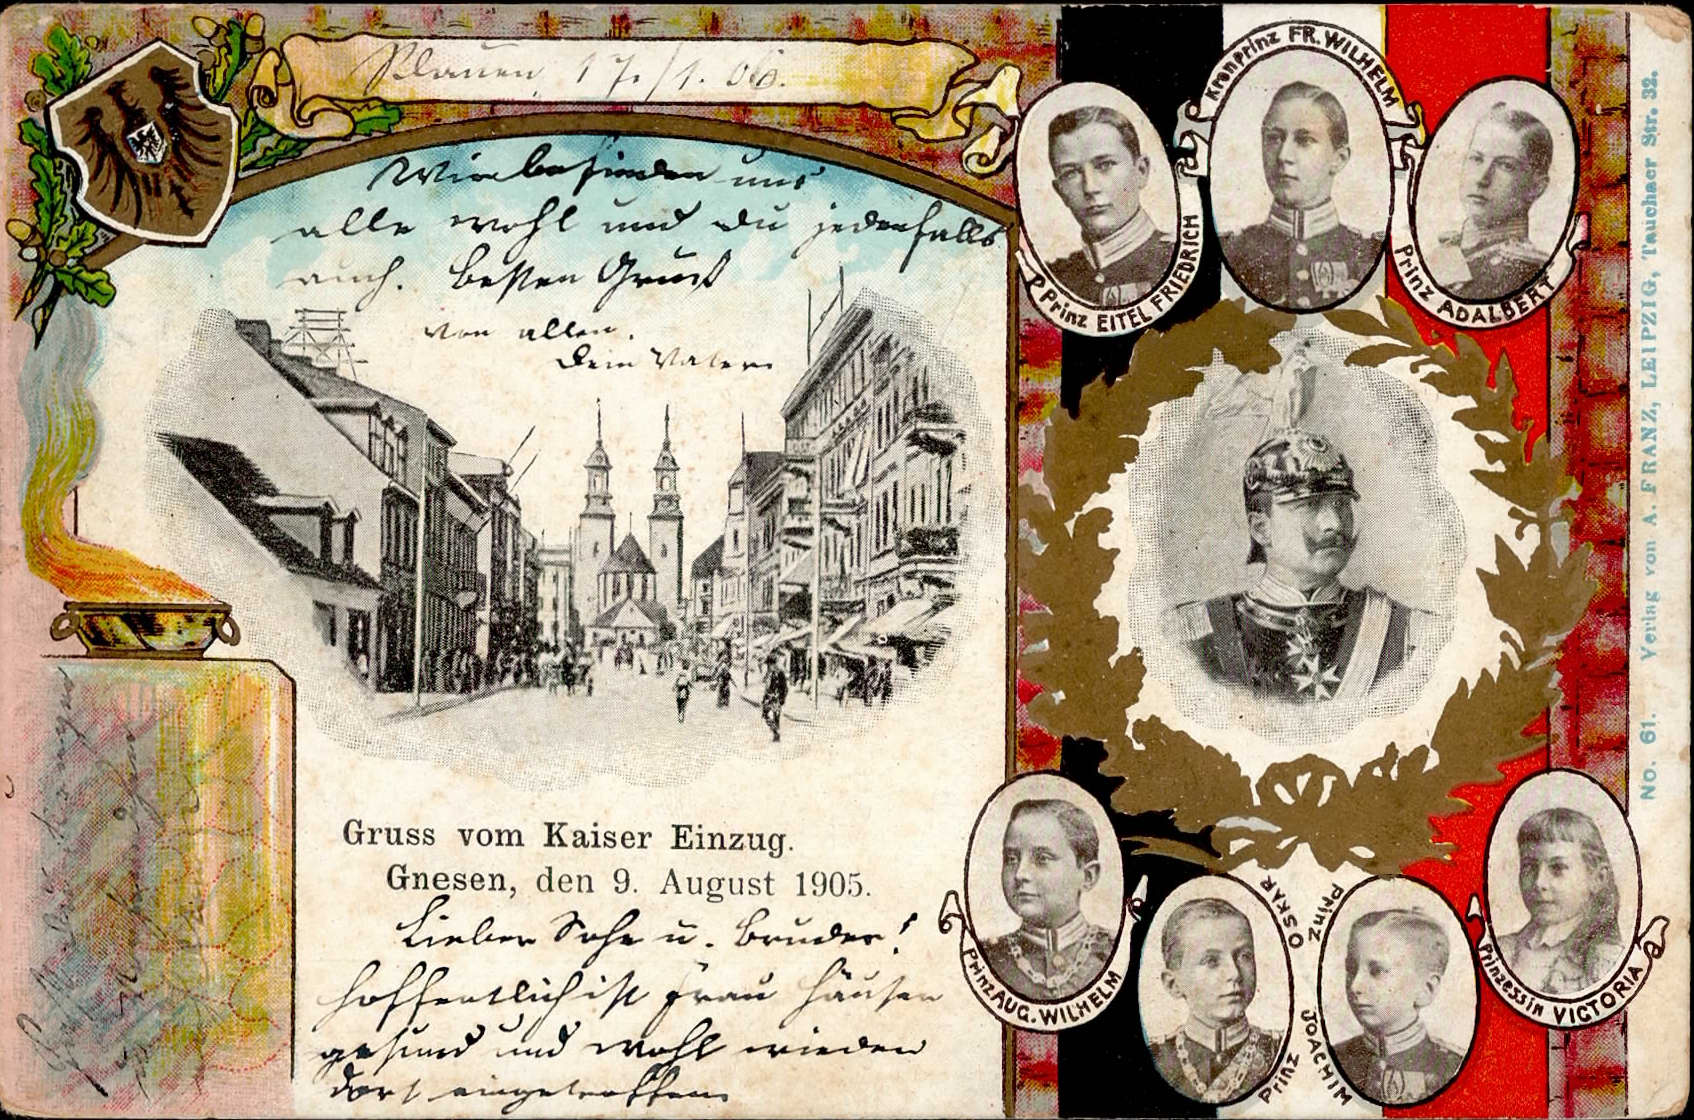 Plauen, 17./1. 06.
Wir befinden uns
alle wohl und du jedenfalls
auch. besten Gruß
von allen.
Dein Vater.
Gruss vom Kaiser Einzug.
Gnesen, den 9. August 1905.
Lieber Sohn u. Bruder!
hoffentlich ist Frau
gesund und wohl wieder
dort eingetroffen
Prinz EITEL FRIEDRICH
Kronprinz FR. WILHELM
Prinz ADALBERT
Prinz AUG. WILHELM
Prinz OSKAR
Prinz JOACHIM
Prinzessin VICTORIA
No. 61. Verlag von A. FRANZ, LEIPZIG, Tauchaer Str. 32.